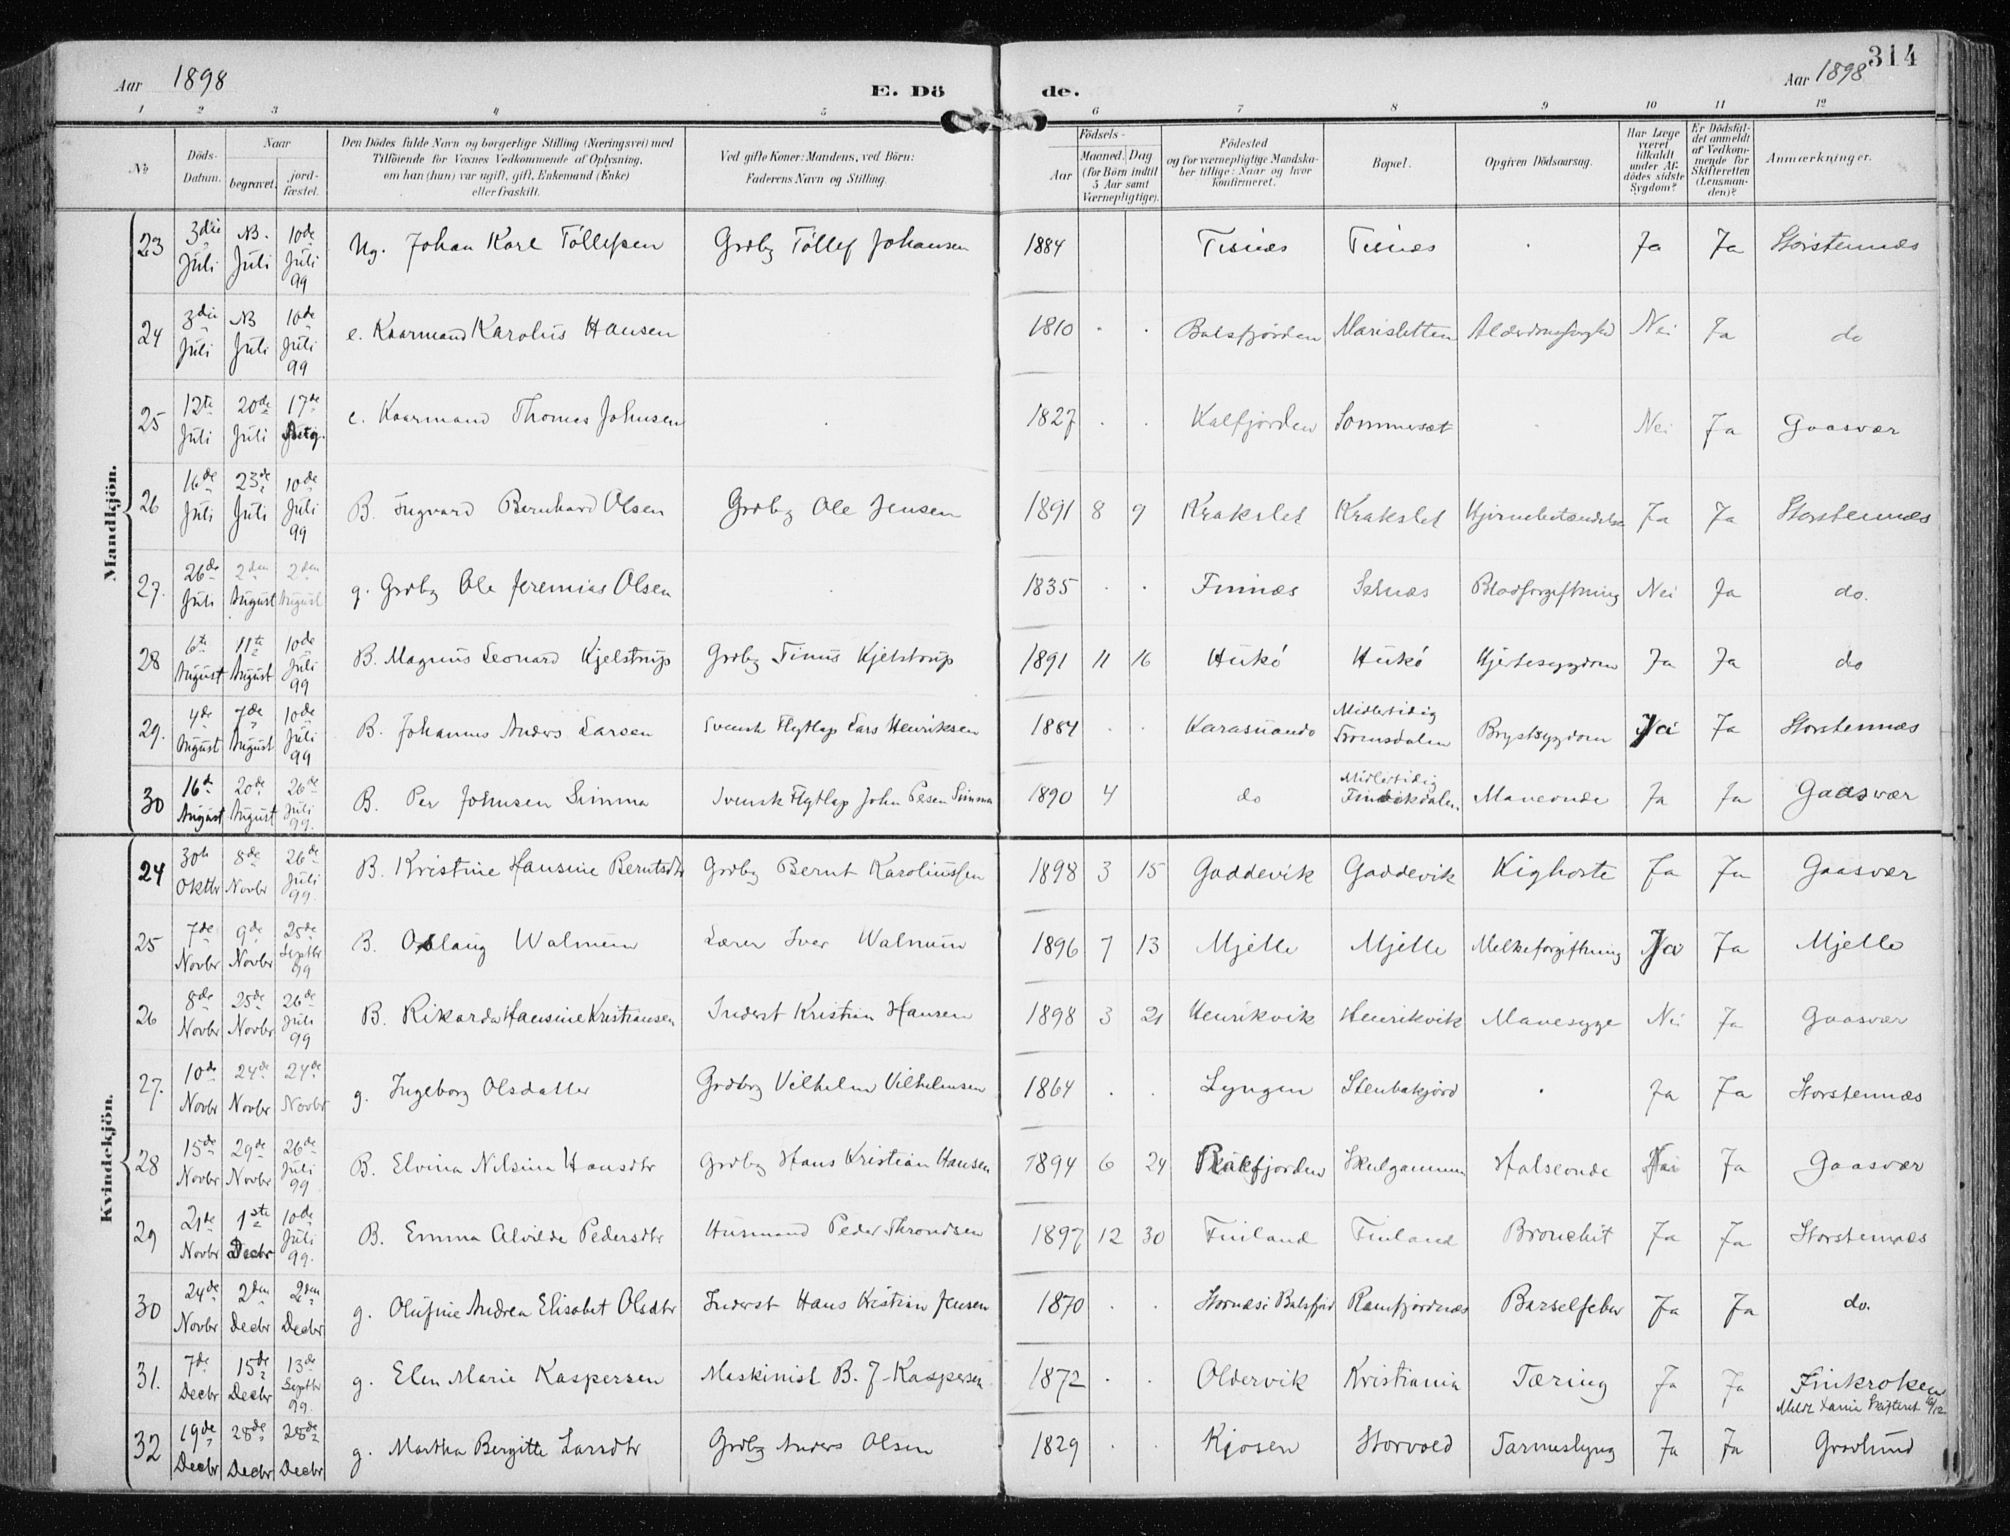 314
Aar 1898
E. Dö de.
Aar 1898
1 2 3 4 5 6 7 8 9 10 11 12
No
Döds-Datum.
Naar
begravet.
jord-fæstet.
Den Dödes fulde Navn og borgerlige Stilling (Næringsvei) med
Tilföiende for Voxnes Vedkommende af Oplysning,
om han (hun) var ugift, gift, Enkemand (Enke)
eller fraskilt.
Ved gifte Koner: Mandens, ved Börn:
Faderens Navn og Stilling.
Födsels-
Aar
Maaned. Dag
(for Börn indtil
5 Aar samt
Værnepligtige).
Födested
og for værnepligtige Mandska-
ber tillige: Naar og hvor
konfirmeret.
Bopæl.
Opgiven Dödsaarsag.
Har Læge
været
tilkaldt
under Af-
dödes sidste
Sygdom?
Er Dödsfal-
det anmeldt
af Vedkom-
mende for
Skifteretten
(Lensman-
den)?
Anmærkninger.
Mandkjön.
23 3die Juli NB. Juli 10de Juli 99 Ug. Johan Karl Töllefsen Grdbg Töllef Johansen 1884 Tisnæs Tisnæs . Ja Ja Storstennæs
24 3die Juli NB Juli 10de Juli 99 e. Kaarmand Karolus Hansen 1810 . . Balsfjorden Marisletten Alderdomssvaghed Nei Ja do
25 12te Juli 20de Juli 17de Aug. e. Kaarmand Thomas Johnsen . 1827 . . Kalfjorden Sommersæt . Nei Ja Gaasvær
26 16de Juli 23de Juli 10de Juli 99 B. Ingvard Bernhard Olsen Grdbg Ole Jensen 1891 8 9 Krakslet Krakslet Hjernebetændelse Ja Ja Storstennæs
27. 26de Juli 2den August 2den August g. Grdbg Ole Jeremias Olsen . 1835 . . Finnæs Selnæs Blodforgiftning Nei Ja do.
28 6te August 11te August 10de Juli 99 B. Magnus Leonard Kjelstrup Grdbg Tinus Kjelstrup 1891 11 16 Hukö Hukö Hjertesygdom Ja Ja do
29. 4de August 7de August 10de Juli 99 B. Johannes Anders Larsen Svensk Flytlap Lars Henriksen 1884 . . Karasuando Midlertidig Tromsdalen Brystsygdom Nei Ja Storstennæs
30 16d August 20de August 26de Juli 99. B. Per Johnsen Simma Svensk Flytlap John Pesen Simma 1890 4 do Midlertidig Maveonde Ja Ja Gaasvær
Kvindekjön.
24 30te Oktbr 8de Novbr 26de Juli 99. B. Kristine Hansine Berntsdtr Grdbg Bernt Karoliussen 1898 3 15 Gaddevik Gaddevik Kighoste Ja Ja Gaasvær
25 7de Novbr 9de Novbr 25de Septbr 99 B. Aslaug Walnum Lærer Iver Walnum 1896 7 13 Mjelle Mjelle Melkeforgiftning Ja Mjelle
26 8de Novbr 25de Novbr 26de Juli 99 B. Rikarda Hansine Kristiansen Inderst Kristian Hansen 1898 3 21 Henrikvik Henrikvik Mavesyge Nei Ja Gaasvær
27. 10de Novbr 24de Novbr 24de Novbr g. Ingeborg Olsdatter Grdbrg Vilhelm Vilhelmsen 1864 . . Lyngen Stenbakjord . Ja Ja Storstennæs
28 15de Novbr 29de Novbr 26de Juli 99 B. Elvina Nilsina Hansdtr Grdbg Hans Kristian Hansen 1894 6 24 Skulgammen Halseonde Nei Ja Gaasvær
29 21de Novbr 1ste Decbr 10de Juli 99. B. Emma Alvilde Pedersdtr Husmand Peder Throndsen 1897 12 30 Finland Finland Bronchit Ja Ja Storstennæs
30 24de Novbr 2den Decbr 2den Decbr g. Olufine Andrea Elisabet Olsdtr Inderst Hans Kristian Jensen 1870 . . Stornæs i Balsfjord Ramfjordnæs Barselfeber Ja Ja do.
31. 7de Decbr 15de Decbr 13de Septbr 99. g. Elen Marie Kaspersen Maskinist B. J. Kaspersen 1872 . . Oldervik Kristiania Tæring Ja Ja Finkroken
32 19de Decbr 28de Decbr 28de Decbr g. Martha Bergitte Larsdtr Grdbg Anders Olsen 1829 . . Kjosen Storvold Tarmeslyng Ja Ja Gravlund